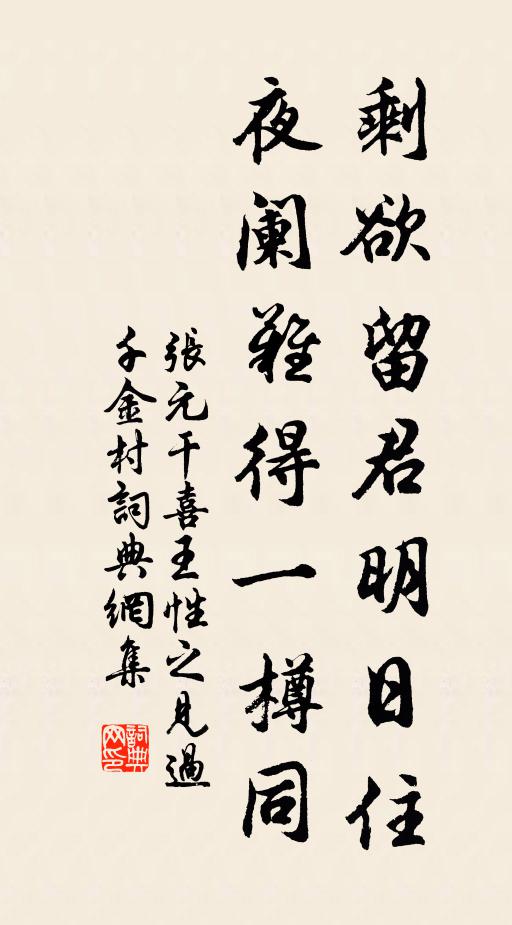 剩欲留君明日住
夜阑難得一樽同
張元干喜王性之見過
千金村詞典網集
詞典网印